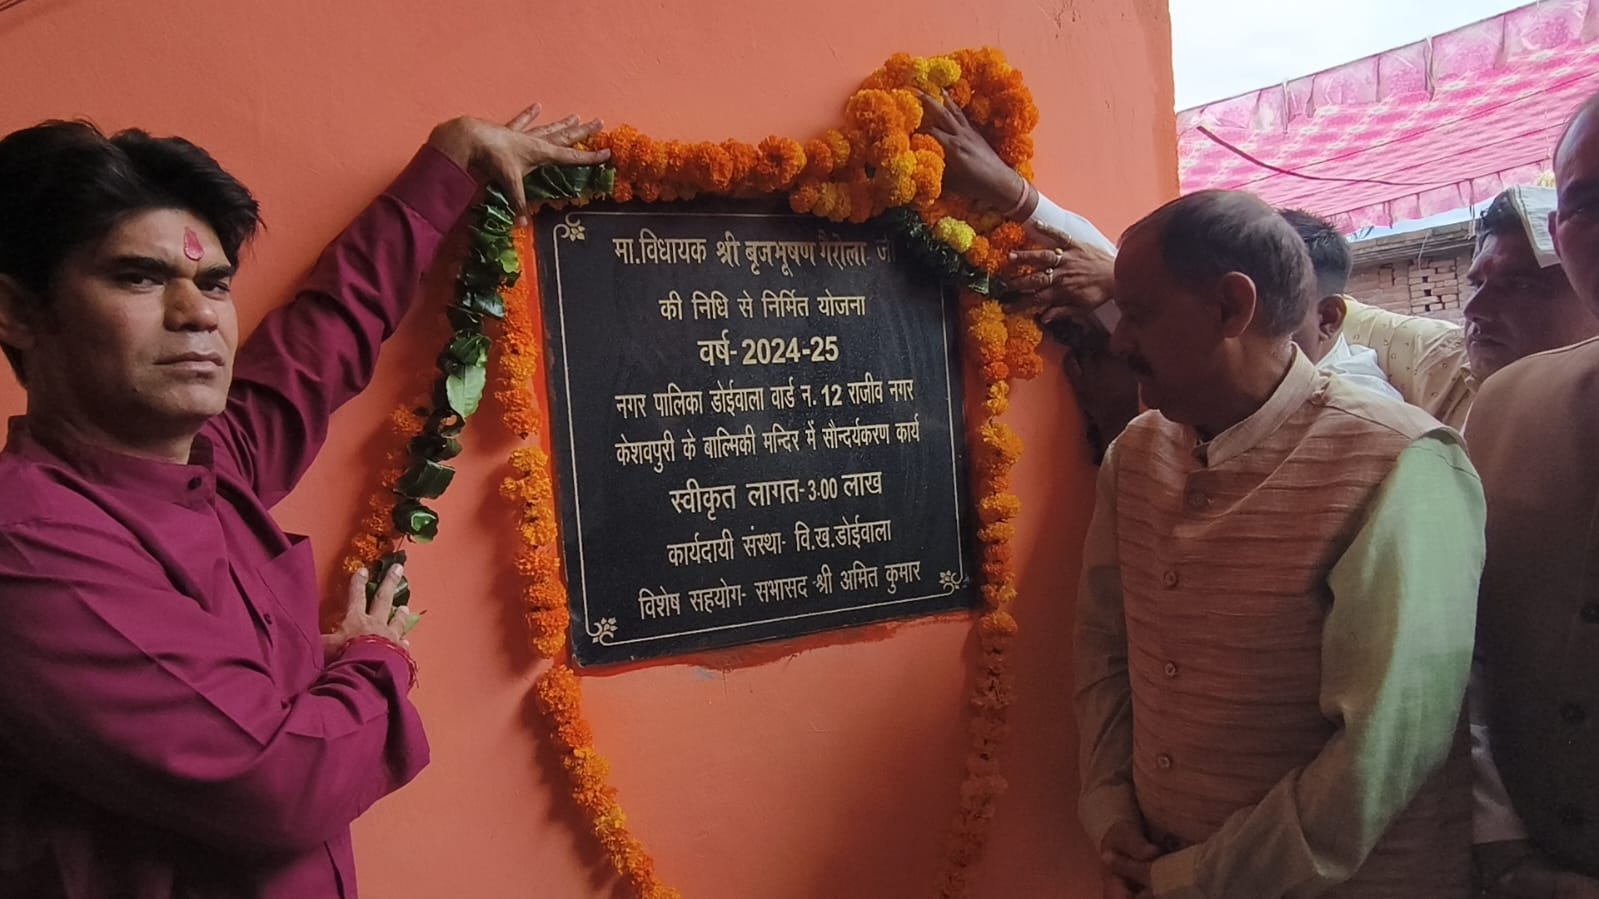 मा.विधायक श्री बृजभूषण गैरोला जी
की निधि से निर्मित योजना
वर्ष- 2024-25
नगर पालिका डोईवाला वार्ड न. 12 राजीव नगर
केशवपुरी के बाल्मिकी मन्दिर में सौन्दर्यकरण कार्य
स्वीकृत लागत- 3.00 लाख
कार्यदायी संस्था- वि.ख.डोईवाला
विशेष सहयोग- सभासद श्री अमित कुमार